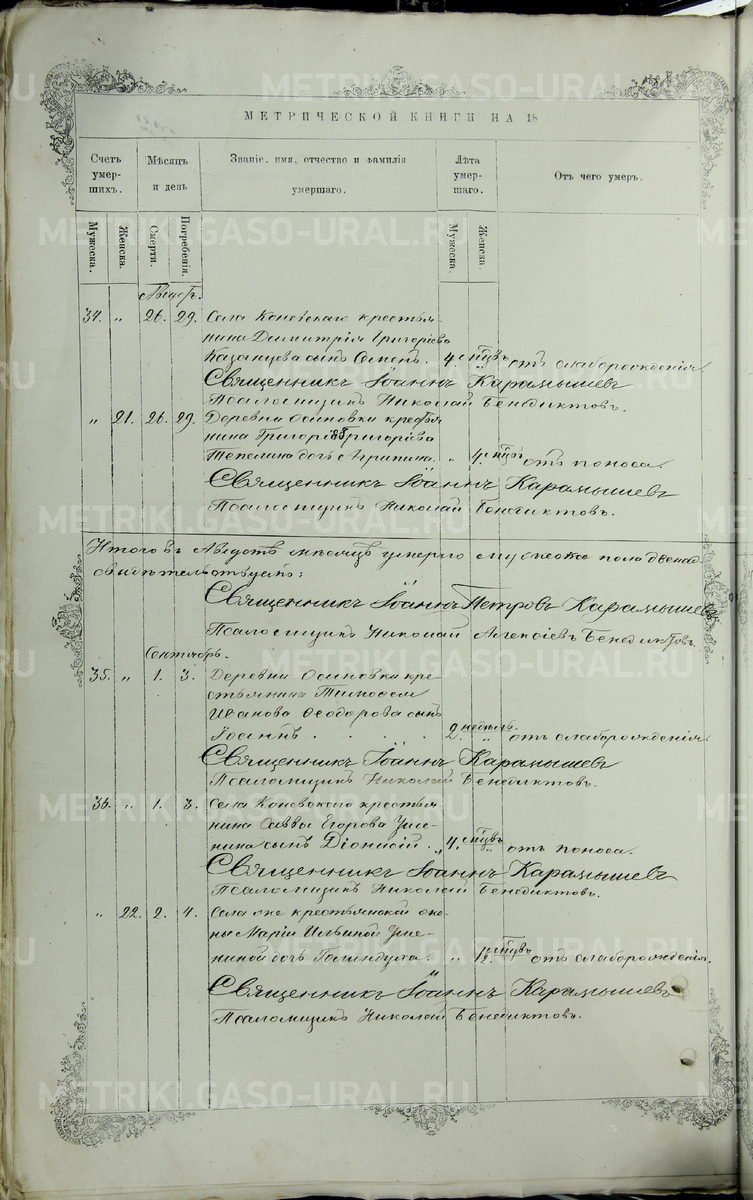 МЕТРИЧЕСКОЙ КНИГИ НА 18
Счетъ умершихъ.
Мѣсяцъ и день
Званіе, имя, отчество и фамилія умершаго.
Лѣта умершаго.
Отъ чего умеръ.
Мужеска.
Женска.
Смерти.
Погребенія.
Мужеска.
Женска.
Августъ.
34. „ 26. 29. Села Коневскаго крестья-
нина Димитрія Григоріева
Казанцева сынъ Семенъ. 4. мѣсцъ отъ слаборожденія.
Священникъ Іоаннъ Карамышевъ
Псаломщикъ Николай Бенедиктовъ.
„ 21. 26. 29. Деревни Осиновки крестья
нина Григорія Григоріева
дочь Агрипина. „ 4. мѣсцъ отъ поноса.
Священникъ Іоаннъ Карамышевъ
Псаломщикъ Николай Бенедиктовъ.
Итого въ Августѣ мѣсяцѣ умерло мужеска пола двенад
Свидѣтельствуютъ:
Священникъ Іоаннъ Петровъ Карамышевъ
Псаломщикъ Николай Алексіевъ Бенедиктовъ.
Сентябрь.
35. „ 1. 3. Деревни Осиновки кре-
стьянина Тимофея
Иванова Ѳеодорова сынъ
Іоаннъ . . . . 2 недѣль. „ отъ слаборожденія.
Священникъ Іоаннъ Карамышевъ
Псаломщикъ Николай Бенедиктовъ.
36. „ 1. 3. Села Коневского крестья
нина Саввы Егорова Уше-
нина сынъ Діонисій. „ 4. мѣсцъ „ отъ поноса.
Священникъ Іоаннъ Карамышевъ
Псаломщикъ Николай Бенедиктовъ.
„ 22. 2. 4. Села же крестьянской же-
ны Маріи Ильиной Уше-
ниной дочь Голиндуха. „ 1½ мѣсцъ отъ слаборожденія.
Священникъ Іоаннъ Карамышевъ
Псаломщикъ Николай Бенедиктовъ.
METRIKI.GASO-URAL.RU